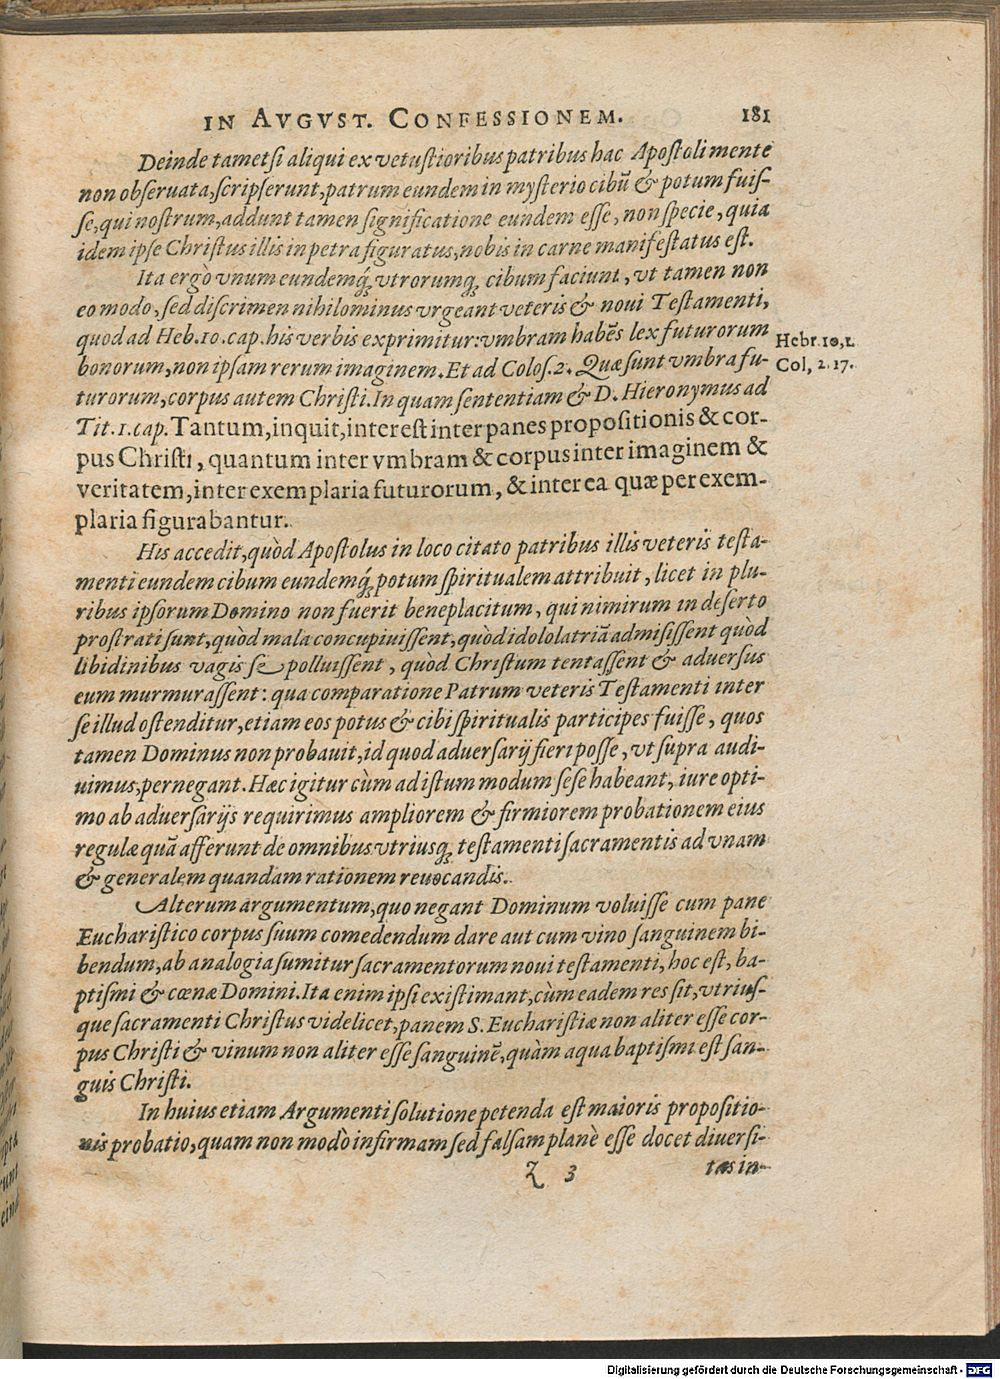 IN AVGVST. CONFESSIONEM. 181
Deinde tametsi aliqui ex vetustioribus patribus hac Apostoli mente
non obseruata, scripserunt, patrum eundem in mysterio cibũ & potum fuis-
se, qui nostrum, addunt tamen significatione eundem esse, non specie, quia
idem ipse Christus illis in petra figuratus, nobis in carne manifestatus est.
Ita ergò vnum eundemq́; vtrorumq; cibum faciunt, vt tamen non
eo modo, sed discrimen nihilominus vrgeant veteris & noui Testamenti,
quod ad Heb. 10. cap. his verbis exprimitur: vmbram habẽs lex futurorum
Hebr. 10, 1.
bonorum, non ipsam rerum imaginem. Et ad Colos. 2. Quæ sunt vmbra fu-
Col, 2. 17.
turorum, corpus autem Christi. In quam sententiam & D. Hieronymus ad
Tit. 1. cap. Tantum, inquit, interest inter panes propositionis & cor-
pus Christi, quantum inter vmbram & corpus inter imaginem &
veritatem, inter exemplaria futurorum, & inter ea quæ per exem-
plaria figurabantur.
His accedit, quòd Apostolus in loco citato patribus illis veteris testa-
menti eundem cibum eundemq́; potum spiritualem attribuit, licet in plu-
ribus ipsorum Domino non fuerit beneplacitum, qui nimirum in deserto
prostrati sunt, quòd mala concupiuissent, quòd idololatriã admisissent quòd
libidinibus vagis se polluissent, quòd Christum tentassent & aduersus
eum murmurassent: qua comparatione Patrum veteris Testamenti inter
se illud ostenditur, etiam eos potus & cibi spiritualis participes fuisse, quos
tamen Dominus non probauit, id quod aduersarij fieri posse, vt supra audi-
uimus, pernegant. Hæc igitur cùm ad istum modum sese habeant, iure opti-
mo ab aduersarijs requirimus ampliorem & firmiorem probationem eius
regulæ quã afferunt de omnibus vtriusq; testamenti sacramentis ad vnam
& generalem quandam rationem reuocandis.
Alterum argumentum, quo negant Dominum voluisse cum pane
Eucharistico corpus suum comedendum dare aut cum vino sanguinem bi-
bendum, ab analogia sumitur sacramentorum noui testamenti, hoc est, ba-
ptismi & cœnæ Domini. Ita enim ipsi existimant, cùm eadem res sit, vtrius-
que sacramenti Christus videlicet, panem S. Eucharistiæ non aliter esse cor-
pus Christi & vinum non aliter esse sanguinẽ, quàm aqua baptismi est san-
guis Christi.
In huius etiam Argumenti solutione petenda est maioris propositio-
nis probatio, quam non modò infirmam sed falsam planè esse docet diuersi-
Z 3 tas in-
Digitalisierung gefördert durch die Deutsche Forschungsgemeinschaft - DFG